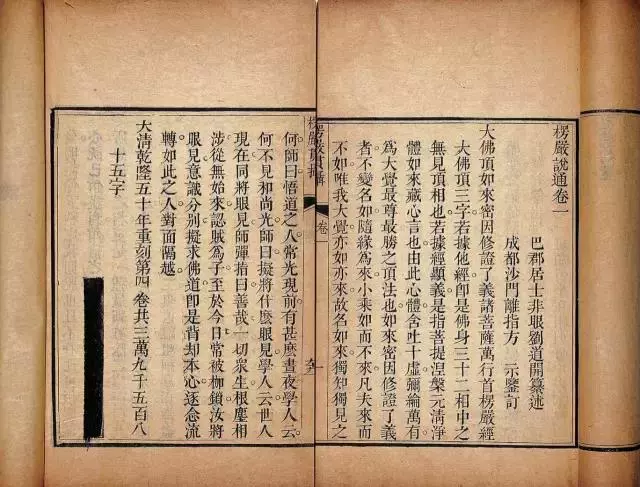 楞嚴說通卷一
巴郡居士非眼劉道開纂述
成都沙門離指方示鑒訂
大佛頂如來密因修證了義諸菩薩萬行首楞嚴經
大佛頂三字若據他經卽是佛身三十二相中之
無見頂相也若據經顯義是指菩提涅槃元清淨
體如來藏心言也由此心體含吐十虛彌綸萬有
爲大覺最尊最勝之頂法也如來密因修證了義
者不變名如隨緣爲來小乘如而不來凡夫來而
不如唯我大覺亦如亦來故名如來獨知獨見之
楞嚴貫攝
卷一
楞嚴貫攝
何師曰悟道之人常光現前有甚麽晝夜學人云
何不見和尚光師曰擬將什麽眼見學人云世人
現在同將眼見師彈指曰善哉一切衆生根塵相
涉從無始來認賊爲子至於今日常被枷鎖汝將
眼見意識分別擬求佛道卽是背却本心逐念流
轉如此之人對面隔越
大清乾隆五十年重刻第四卷共三萬九千五百八
十五字